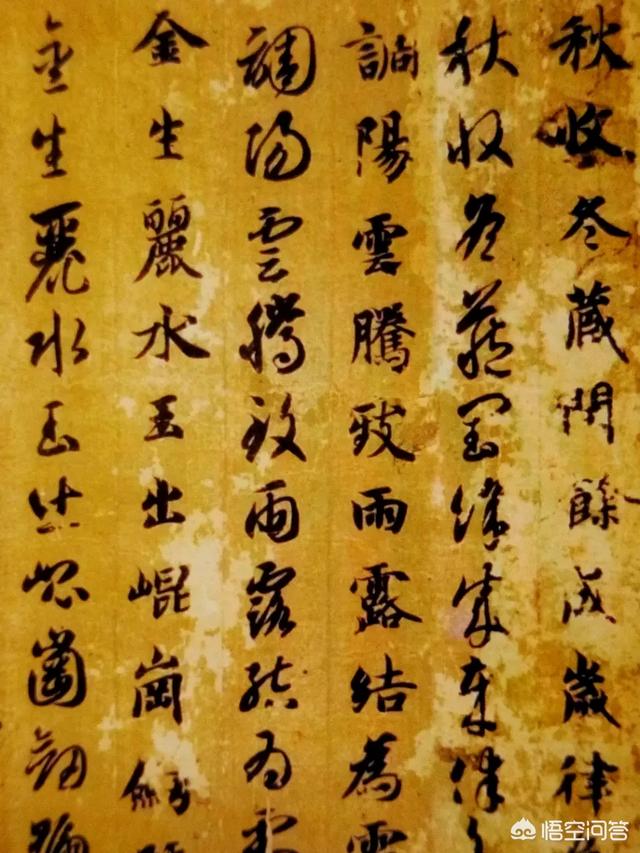 秋收冬藏閏餘成歲律
秋收冬藏閏餘成歲律
調陽雲騰致雨露結為
調陽雲騰致雨露結為
金生麗水玉出崐崗
金生麗水玉出崐崗劒號
悟空问答